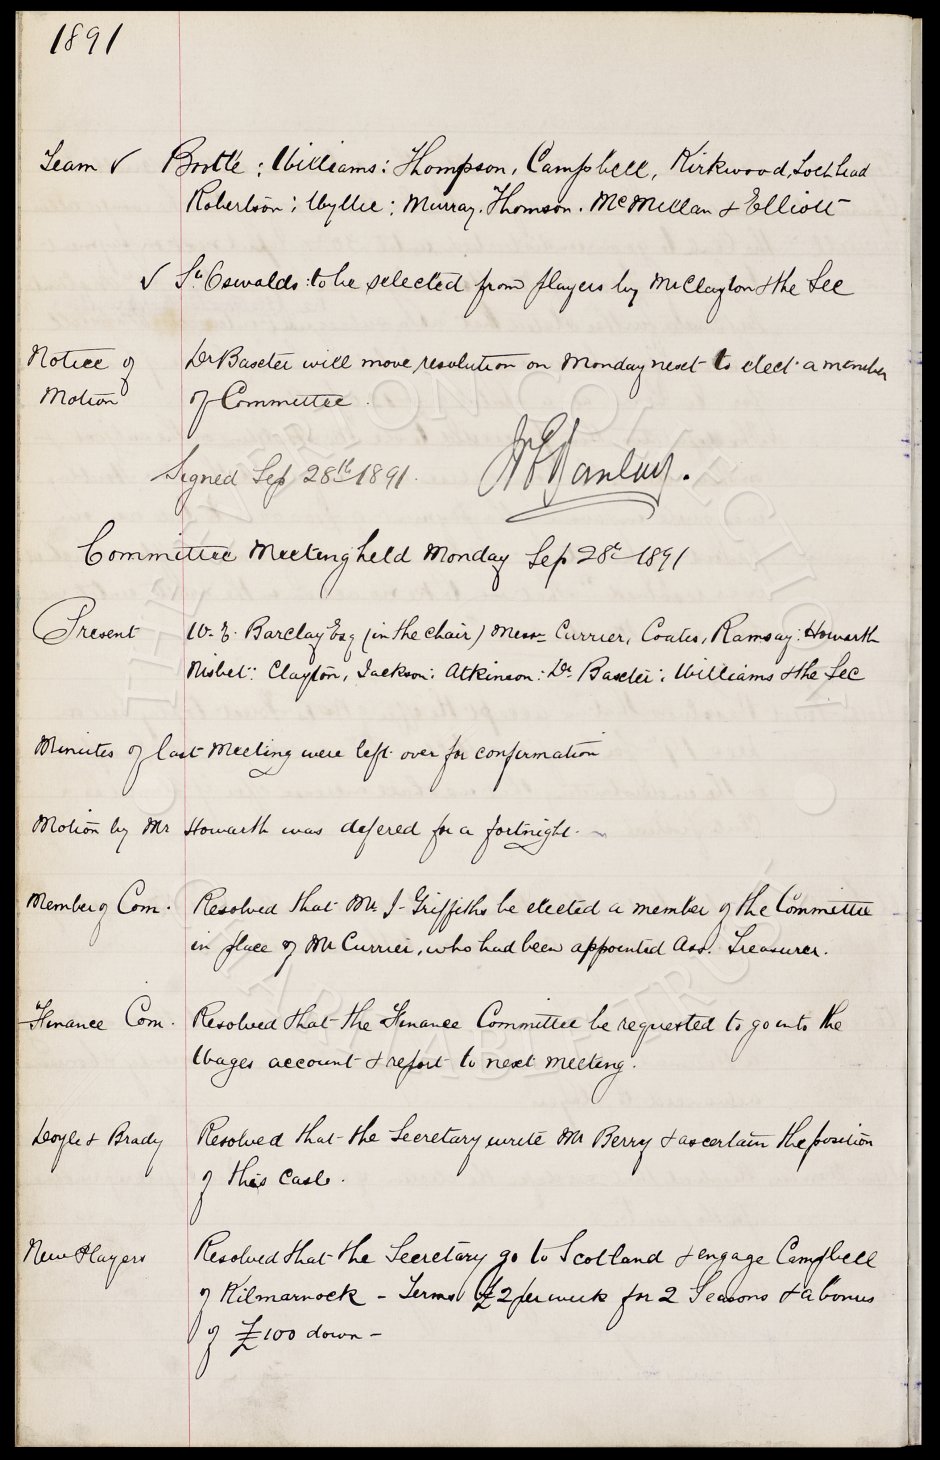 1891
Team ✓ Bootle: Williams: Thompson, Campbell, Kirkwood, Lochhead
Robertson; Wyllie; Murray. Thomson. McMillan & Elliott
✓ St Oswalds: to be selected from players by Mr Clayton & the Sec
Notice of Dr Baxter will move resolution on Monday next to elect a member
Motion of Committee.
Signed Sep 28th 1891.
Committee Meeting held Monday Sep 28th 1891
Present W. E. Barclay Esq (in the chair) Messrs Currier, Coates, Ramsay: Howarth
Nisbet: Clayton, Jackson: Atkinson: Dr Baxter: Williams & the Sec
Minutes of last Meeting were left over for confirmation
Motion by Mr Howarth was defered for a fortnight.
Member of Com. Resolved that Mr J. Griffiths be elected a member of the Committee
in place of Mr Currier, who had been appointed Ass. Treasurer.
Finance Com. Resolved that the Finance Committee be requested to go into the
Wages account & report to next meeting.
Doyle & Brady Resolved that the Secretary write Mr Berry & ascertain the position
of this case.
New Players Resolved that the Secretary go to Scotland & engage Campbell
of Kilmarnock - Terms £2 per week for 2 Seasons & a bonus
of £100 down -
EVERTON COLLECTION
CHARITABLE TRUST